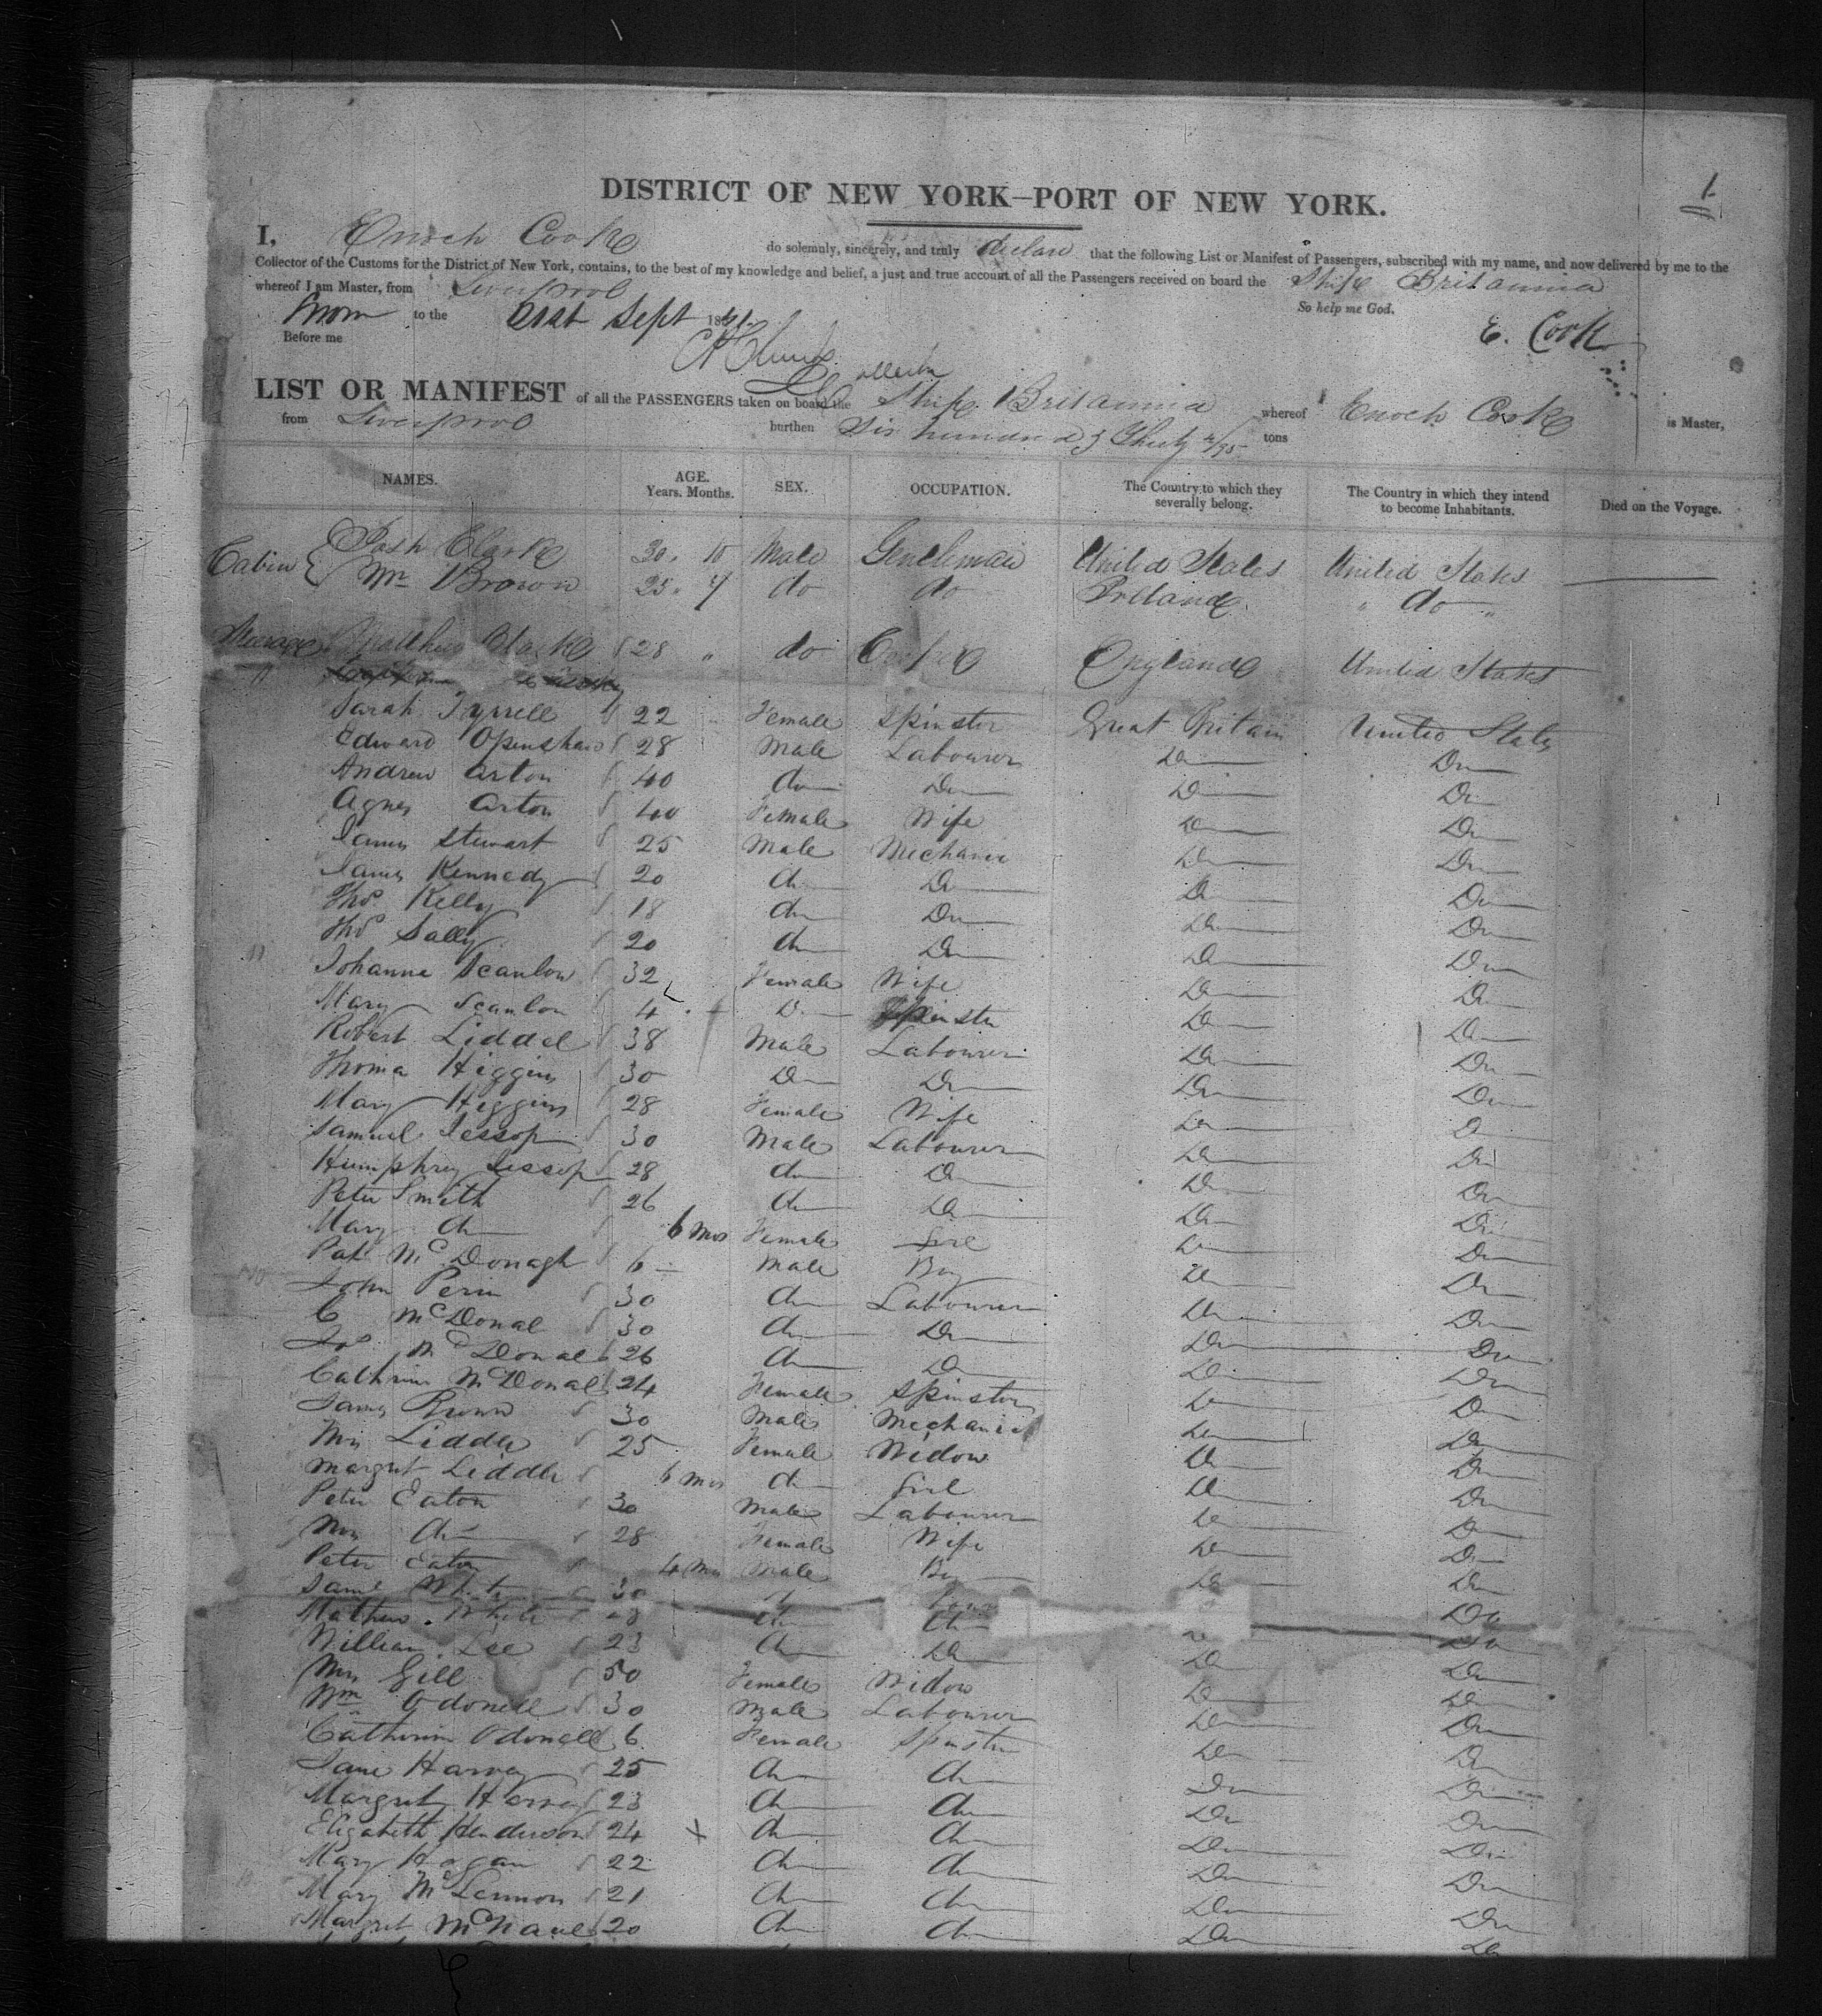 1
DISTRICT OF NEW YORK—PORT OF NEW YORK.
I, Enoch Cook do solemnly, sincerely, and truly declare that the following List or Manifest of Passengers, subscribed with my name, and now delivered by me to the
Collector of the Customs for the District of New York, contains, to the best of my knowledge and belief, a just and true account of all the Passengers received on board the Ship Britannia
whereof I am Master, from Liverpool
So help me God.
Sworn to the 21st Sept 1841. E. Cook
Before me
LIST OR MANIFEST of all the PASSENGERS taken on board the Ship Britannia whereof Enoch Cook is Master,
from Liverpool burthen Six hundred & Thirty tons
NAMES. AGE. Years. Months. SEX. OCCUPATION. The Country to which they severally belong. The Country in which they intend to become Inhabitants. Died on the Voyage.
Cabin { Josh Clarke 30 10 Male Gentleman United States United States
Mr Brown 25 do do Ireland " do "
Steerage Matthew Clarke 28 " do England United States
Sarah Tyrrell 22 Female Spinster Great Britain United States
Edward Openshaw 28 Male Labourer Do Do
Andrew Arton 40 do Do Do Do
Agnes Arton 40 Female Wife Do Do
James Stewart 25 Male Mechanic Do Do
James Kennedy 20 do Do Do Do
Thos Kelly 18 do Do Do Do
Thos Sally 20 do Do Do Do
Johanna Scanlon 32 Female Wife Do Do
Mary Scanlon 4 Do Spinster Do Do
Robert Liddel 38 Male Labourer Do Do
Thoma Higgins 30 Do Do Do Do
Mary Higgins 28 Female Wife Do Do
Samuel Jessop 30 Male Labourer Do Do
Humphrey Jessop 28 do Do Do Do
Peter Smith 26 do Do Do Do
Mary do 6 mos Female Girl Do Do
Pat McDonagh 6 Male Boy Do Do
John Perin 30 do Labourer Do Do
C McDonal 30 do Do Do Do
Jos McDonal 26 do Do Do Do
Cathrin McDonal 24 Female Spinster Do Do
James Brown 30 Male Mechanic Do Do
Mrs Liddle 25 Female Widow Do Do
Margret Liddle 6 mos do Girl Do Do
Peter Eaton 30 Male Labourer Do Do
Mrs do 28 Female Wife Do Do
Peter Eaton 4 Mos Male Boy Do Do
Saml White 30 Do Do
Mathew White do do Do
William Lee 23 do Do Do Do
Mrs Gill 50 Female Widow Do Do
Wm Odonell 30 Male Labourer Do Do
Catherin Odonell 6 Female Spinster Do Do
Jane Harvey 25 do do Do Do
Margret Harvey 23 do do Do Do
Elizabeth Henderson 24 x do do Do Do
Mary Hogan 22 do do Do Do
Mary McLennon 21 do do Do Do
Margret 20 do do Do Do